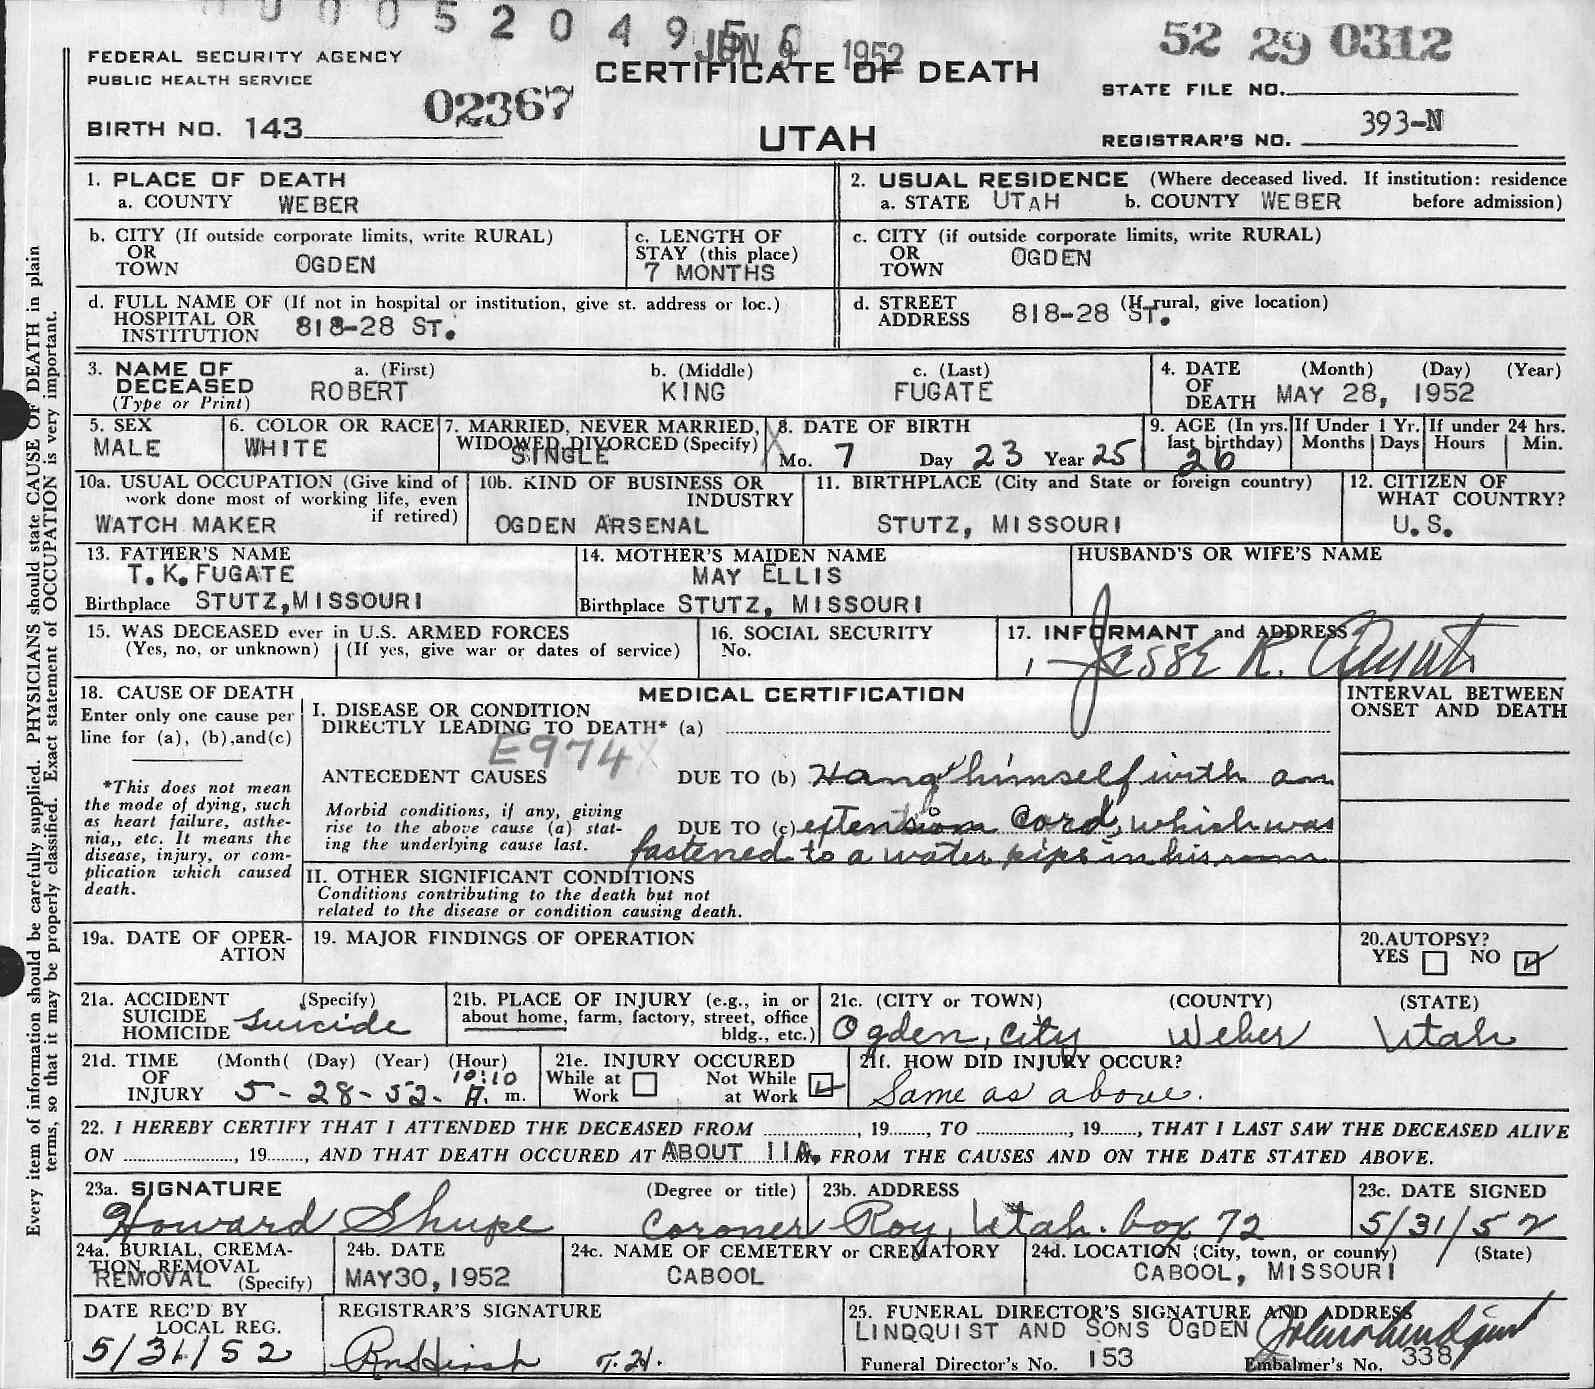 0 0 0 5 2 0 4 9 5 6
JUN 9 1952
52 29 0312
FEDERAL SECURITY AGENCY
PUBLIC HEALTH SERVICE
CERTIFICATE OF DEATH
STATE FILE NO.
02367
BIRTH NO. 143
UTAH
REGISTRAR'S NO. 393-N
1. PLACE OF DEATH
a. COUNTY WEBER
2. USUAL RESIDENCE (Where deceased lived. If institution: residence
a. STATE UTAH b. COUNTY WEBER before admission)
b. CITY (If outside corporate limits, write RURAL)
OR
TOWN OGDEN
c. LENGTH OF
STAY (this place)
7 MONTHS
c. CITY (if outside corporate limits, write RURAL)
OR
TOWN OGDEN
d. FULL NAME OF (If not in hospital or institution, give st. address or loc.)
HOSPITAL OR
INSTITUTION 818-28 ST.
d. STREET (If rural, give location)
ADDRESS 818-28 ST.
3. NAME OF
DECEASED
(Type or Print)
a. (First)
ROBERT
b. (Middle)
KING
c. (Last)
FUGATE
4. DATE (Month) (Day) (Year)
OF
DEATH MAY 28, 1952
5. SEX
MALE
6. COLOR OR RACE
WHITE
7. MARRIED, NEVER MARRIED,
WIDOWED, DIVORCED (Specify)
SINGLE
8. DATE OF BIRTH
Mo. 7 Day 23 Year 25
9. AGE (In yrs.
last birthday)
26
If Under 1 Yr.
Months Days
If under 24 hrs.
Hours Min.
10a. USUAL OCCUPATION (Give kind of
work done most of working life, even
if retired)
WATCH MAKER
10b. KIND OF BUSINESS OR
INDUSTRY
OGDEN ARSENAL
11. BIRTHPLACE (City and State or foreign country)
STUTZ, MISSOURI
12. CITIZEN OF
WHAT COUNTRY?
U.S.
13. FATHER'S NAME
T. K. FUGATE
Birthplace STUTZ, MISSOURI
14. MOTHER'S MAIDEN NAME
MAY ELLIS
Birthplace STUTZ, MISSOURI
HUSBAND'S OR WIFE'S NAME
15. WAS DECEASED ever in U.S. ARMED FORCES
(Yes, no, or unknown) (If yes, give war or dates of service)
16. SOCIAL SECURITY
No.
17. INFORMANT and ADDRESS
Jesse R.
18. CAUSE OF DEATH
Enter only one cause per
line for (a), (b),and(c)
*This does not mean
the mode of dying, such
as heart failure, asthe-
nia,, etc. It means the
disease, injury, or com-
plication which caused
death.
MEDICAL CERTIFICATION
I. DISEASE OR CONDITION
DIRECTLY LEADING TO DEATH* (a)
E974X
ANTECEDENT CAUSES DUE TO (b) Hang himself with an
Morbid conditions, if any, giving
rise to the above cause (a) stat-
ing the underlying cause last.
DUE TO (c) extension cord, which was
fastened to a water pipe in his room
II. OTHER SIGNIFICANT CONDITIONS
Conditions contributing to the death but not
related to the disease or condition causing death.
INTERVAL BETWEEN
ONSET AND DEATH
19a. DATE OF OPER-
ATION
19. MAJOR FINDINGS OF OPERATION
20.AUTOPSY?
YES NO
21a. ACCIDENT (Specify)
SUICIDE
HOMICIDE Suicide
21b. PLACE OF INJURY (e.g., in or
about home, farm, factory, street, office
bldg., etc.)
21c. (CITY or TOWN) (COUNTY) (STATE)
Ogden, City Weber Utah
21d. TIME (Month( (Day) (Year) (Hour)
OF
INJURY 5-28-52. 10:10 A. m.
21e. INJURY OCCURED
While at Not While
Work at Work
21f. HOW DID INJURY OCCUR?
Same as above.
22. I HEREBY CERTIFY THAT I ATTENDED THE DECEASED FROM , 19 , TO , 19 , THAT I LAST SAW THE DECEASED ALIVE
ON , 19 , AND THAT DEATH OCCURED AT ABOUT 11A. FROM THE CAUSES AND ON THE DATE STATED ABOVE.
23a. SIGNATURE (Degree or title)
Howard Shupe Coroner
23b. ADDRESS
Roy, Utah. Box 72
23c. DATE SIGNED
5/31/52
24a. BURIAL, CREMA-
TION REMOVAL
REMOVAL (Specify)
24b. DATE
MAY30, 1952
24c. NAME OF CEMETERY or CREMATORY
CABOOL
24d. LOCATION (City, town, or county) (State)
CABOOL, MISSOURI
DATE REC'D BY
LOCAL REG.
5/31/52
REGISTRAR'S SIGNATURE
T.H.
25. FUNERAL DIRECTOR'S SIGNATURE AND ADDRESS
LINDQUIST AND SONS OGDEN
Funeral Director's No. 153 Embalmer's No. 338
Every item of information should be carefully supplied. PHYSICIANS should state CAUSE OF DEATH in plain
terms, so that it may be properly classified. Exact statement of OCCUPATION is very important.